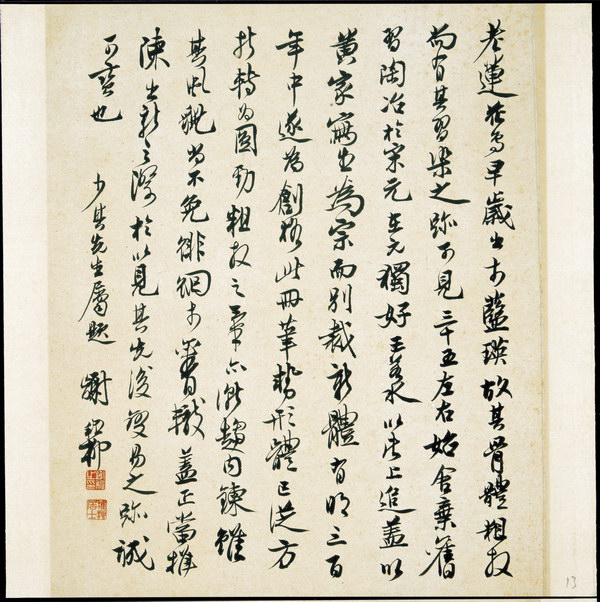 老蓮花鳥早歲出於藍瑛故其骨體粗放
尚有其習染之跡可見三十五左右始舍棄舊
習陶冶於宋元在元獨好王若水以法上追蓋以
黃家寫生為宗而別裁新體有明三百
年中遂為創格此冊筆勢形體已從方
折轉為圓勁粗放之筆亦漸趨內鍊雖
其風貌尚不免徘徊於舊轍蓋正當推
陳出新之際於以見其先後變易之跡誠
可寶也
少其先生屬題 謝稚柳
13